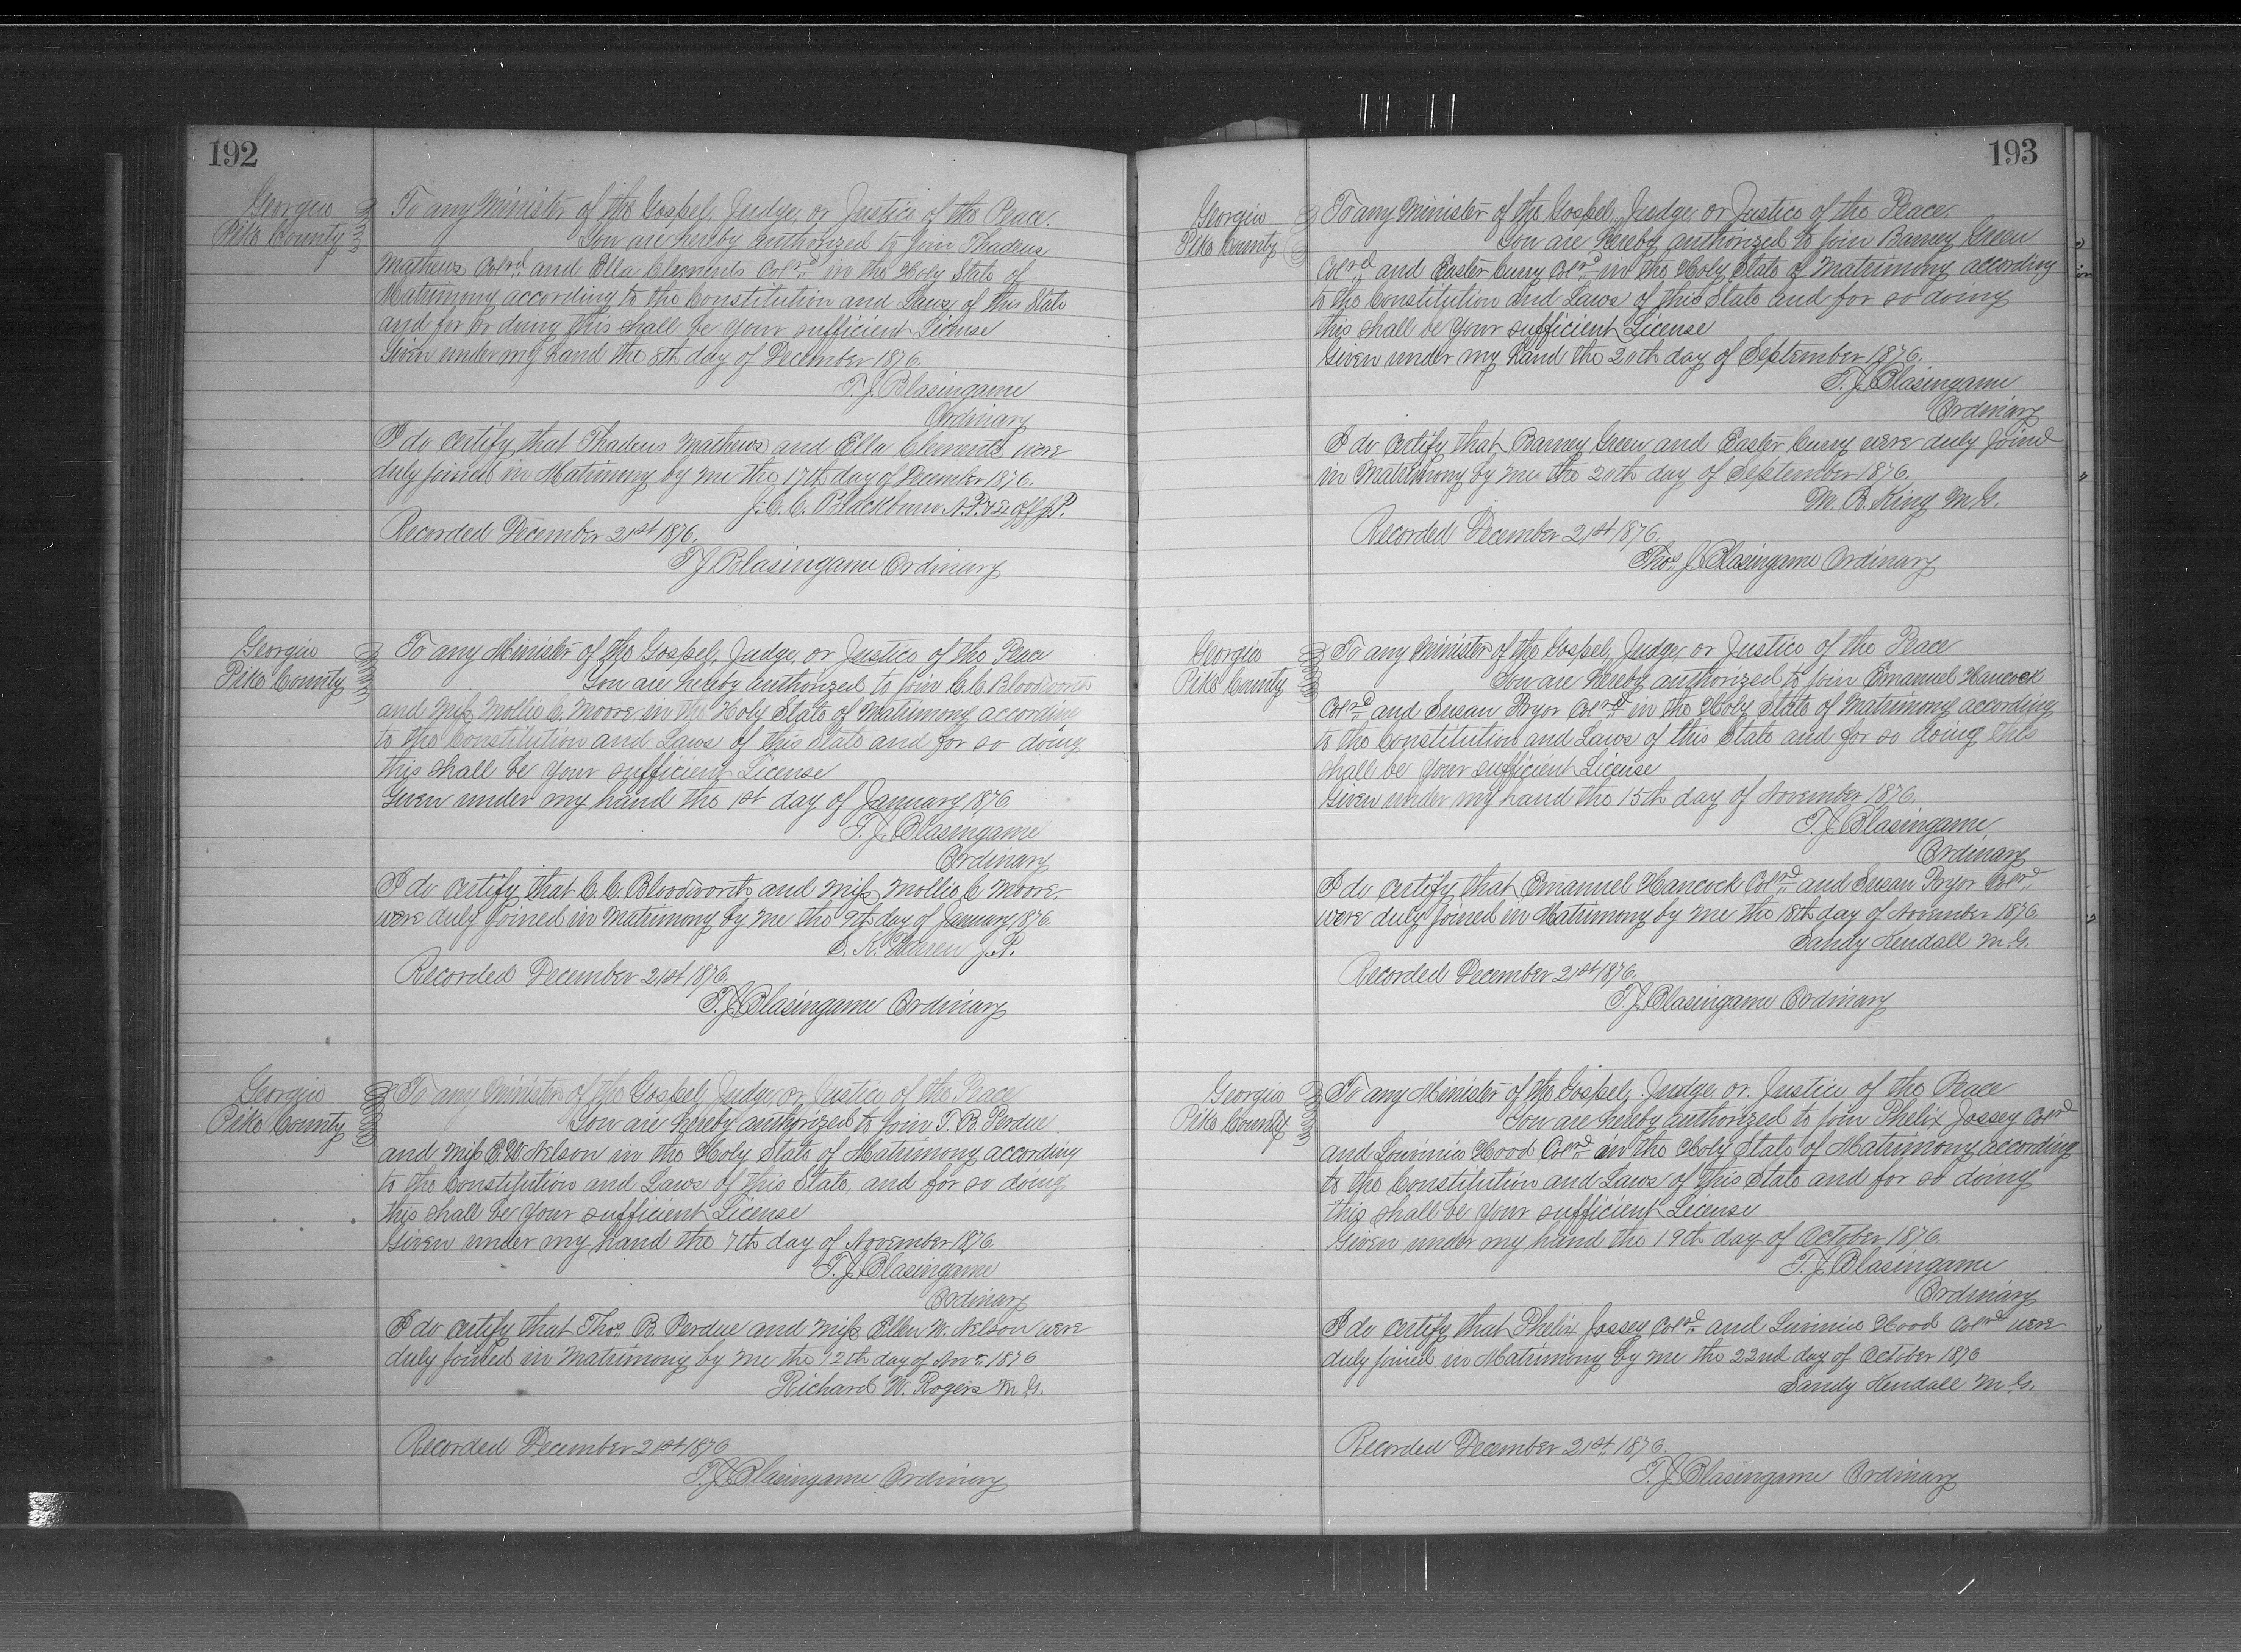 192
Georgia
Pike County
To any Minister of the Gospel, Judge, or Justice of the Peace.
You are hereby authorized to join Thadeus
Mathews Colrd. and Ella Clements Colrd. in the Holy State of
Matrimony according to the Constitution and Laws of this State
and for so doing this shall be your sufficient License
Given under my hand the 8th day of December 1876.
T. J. Blasingame
Ordinary
I do certify that Thadeus Mathews and Ella Clements were
duly joined in Matrimony by me the 17th day of December 1876.
J. C. C. Blackburn N.P. & Ex off J.P.
Recorded December 21st 1876.
T J Blasingame Ordinary
Georgia
Pike County
To any Minister of the Gospel, Judge, or Justice of the Peace
You are hereby authorized to join C. C. Bloodworth
and Miss Mollie C. Moore in the Holy State of Matrimony according
to the Constitution and Laws of this State and for so doing
this shall be your sufficient License
Given under my hand the 1st day of January 1876
T. J. Blasingame
Ordinary
I do certify that C. C. Bloodworth and Miss Mollie C. Moore
were duly joined in Matrimony by me the 9th day of January 1876.
K. J.P.
Recorded December 21st 1876.
T. J. Blasingame Ordinary
Georgia
Pike County
To any Minister of the Gospel, Judge, or Justice of the Peace
You are hereby authorized to join T. R. Perdue
and Miss E. W. Nelson in the Holy State of Matrimony according
to the Constitution and Laws of this State, and for so doing
this shall be your sufficient License
Given under my hand the 7th day of November 1876
T. J. Blasingame
Ordinary
I do certify that Thos. R. Perdue and Miss Ellen W. Nelson were
duly joined in Matrimony by me the 12th day of Novr. 1876
Richard W. Rogers M.G.
Recorded December 21st 1876
T. J. Blasingame Ordinary
193
Georgia
Pike County
To any Minister of the Gospel, Judge, or Justice of the Peace.
You are hereby authorized to join Barney Green
Colrd. and Easter Curry Colrd. in the Holy State of Matrimony according
to the Constitution and Laws of this State and for so doing
this shall be your sufficient License
Given under my hand the 20th day of September 1876.
T. J. Blasingame
Ordinary
I do certify that Barney Green and Easter Curry were duly joind
in Matrimony by me the 20th day of September 1876.
M. B. King M.G.
Recorded December 21st 1876.
Thos. J. Blasingame Ordinary
Georgia
Pike County
To any Minister of the Gospel, Judge, or Justice of the Peace
You are hereby authorized to join Emanuel Hancock
Colrd. and Susan Pryor Colrd. in the Holy State of Matrimony according
to the Constitution and Laws of this State and for so doing this
shall be your sufficient License
Given under my hand the 15th day of November 1876.
T. J. Blasingame
Ordinary
I do certify that Emanuel Hancock Colrd. and Susan Pryor Colrd.
were duly joined in Matrimony by me the 18th day of November 1876.
Sandy Kendall M.G.
Recorded December 21st 1876.
T. J. Blasingame Ordinary
Georgia
Pike County
To any Minister of the Gospel, Judge, or Justice of the Peace
You are hereby authorized to join Phelix Jossey Colrd
and Louvinia Hood Colrd. in the Holy State of Matrimony according
to the Constitution and Laws of this State and for so doing
this shall be your sufficient License
Given under my hand the 19th day of October 1876.
T. J. Blasingame
Ordinary
I do certify that Phelix Jossey Colrd. and Luvinia Hood Colrd were
duly joined in Matrimony by me the 22nd day of October 1876
Sandy Kendall M.G.
Recorded December 21st. 1876.
T. J. Blasingame Ordinary